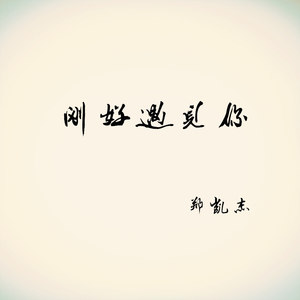 刚好遇见你
郑凯杰